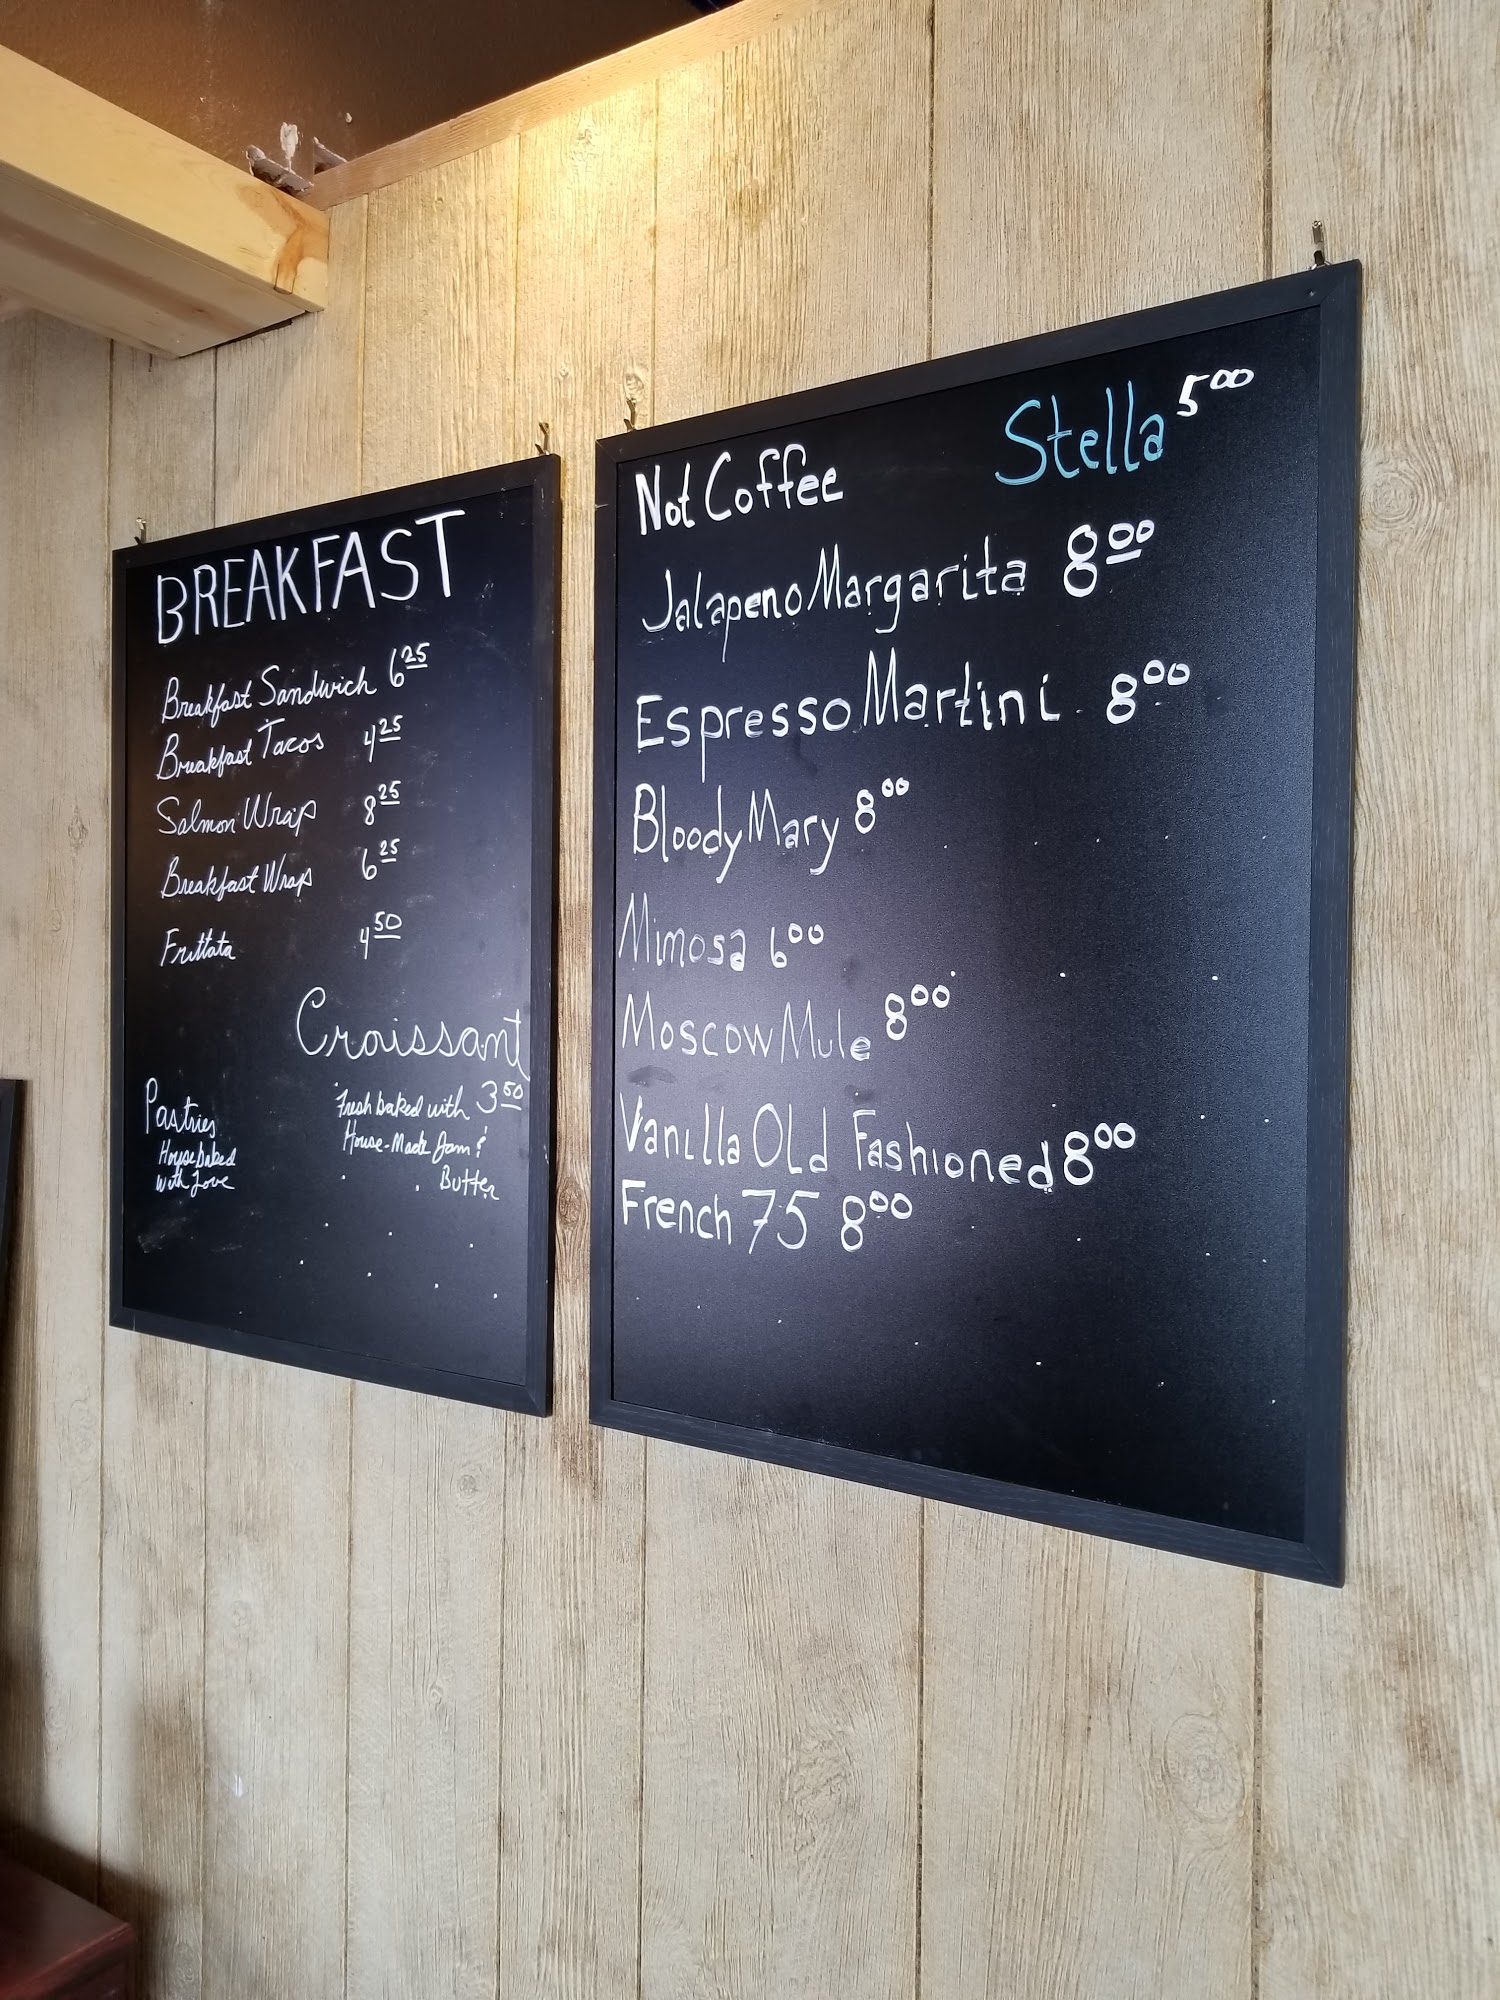 BREAKFAST
Breakfast Sandwich 6 25
Breakfast Tacos 4 25
Salmon Wrap 8 25
Breakfast Wrap 6 25
Frittata 4 50
Croissant
Fresh baked with 3 50
House-Made Jam &
Butter
Pastries
House baked
with Love
Not Coffee
Stella 5 00
Jalapeno Margarita 8 00
Espresso Martini 8 00
Bloody Mary 8 00
Mimosa 6 00
Moscow Mule 8 00
Vanilla Old Fashioned 8 00
French 75 8 00